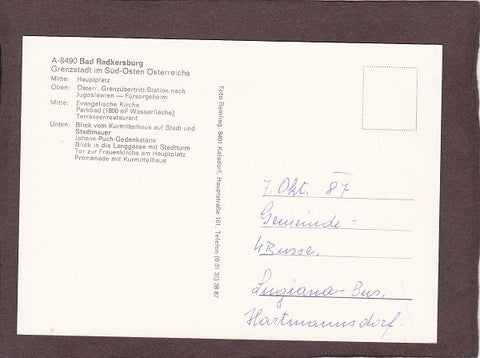 A-8490 Bad Radkersburg
Grenzstadt im Süd-Osten Österreichs
Mitte: Hauptplatz
Oben: Österr. Grenzübertritt-Station nach
Jugoslawien — Fürsorgeheim
Mitte: Evangelische Kirche
Parkbad (1800 m² Wasserfläche)
Terrassenrestaurant
Unten: Blick vom Kurmittelhaus auf Stadt und
Stadtmauer
Johann-Puch-Gedenkstätte
Blick in die Langgasse mit Stadtturm
Tor zur Frauenkirche am Hauptplatz
Promenade mit Kurmittelhaus
Foto Remling, 8401 Kalsdorf, Hauptstraße 161, Telefon (0 31 35) 28 87
7. Okt. 87
Gemeinde-
4 Busse.
Lugiana-Bus,
Hartmannsdorf.